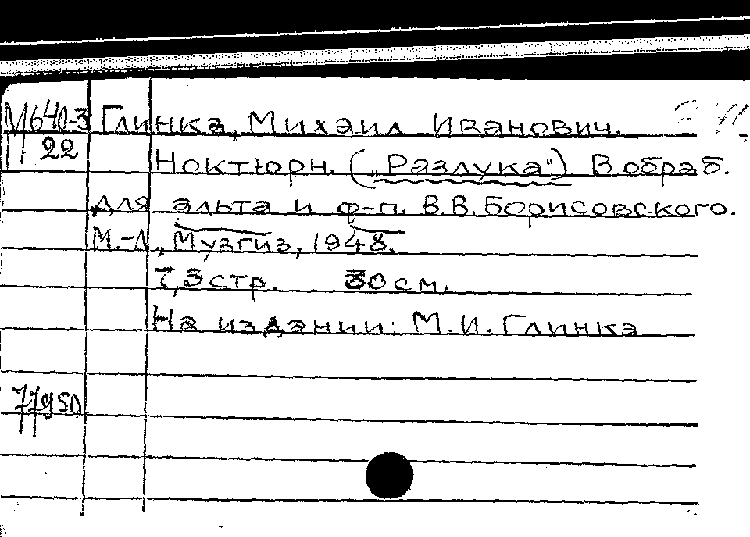 М640-3 Глинка, Михаил Иванович.
22 Ноктюрн. („Разлука“) В обраб.
для альта и ф-п. В.В. Борисовского.
М.-Л., Музгиз, 1948.
7,3 стр. 30 см.
На издании: М.И. Глинка